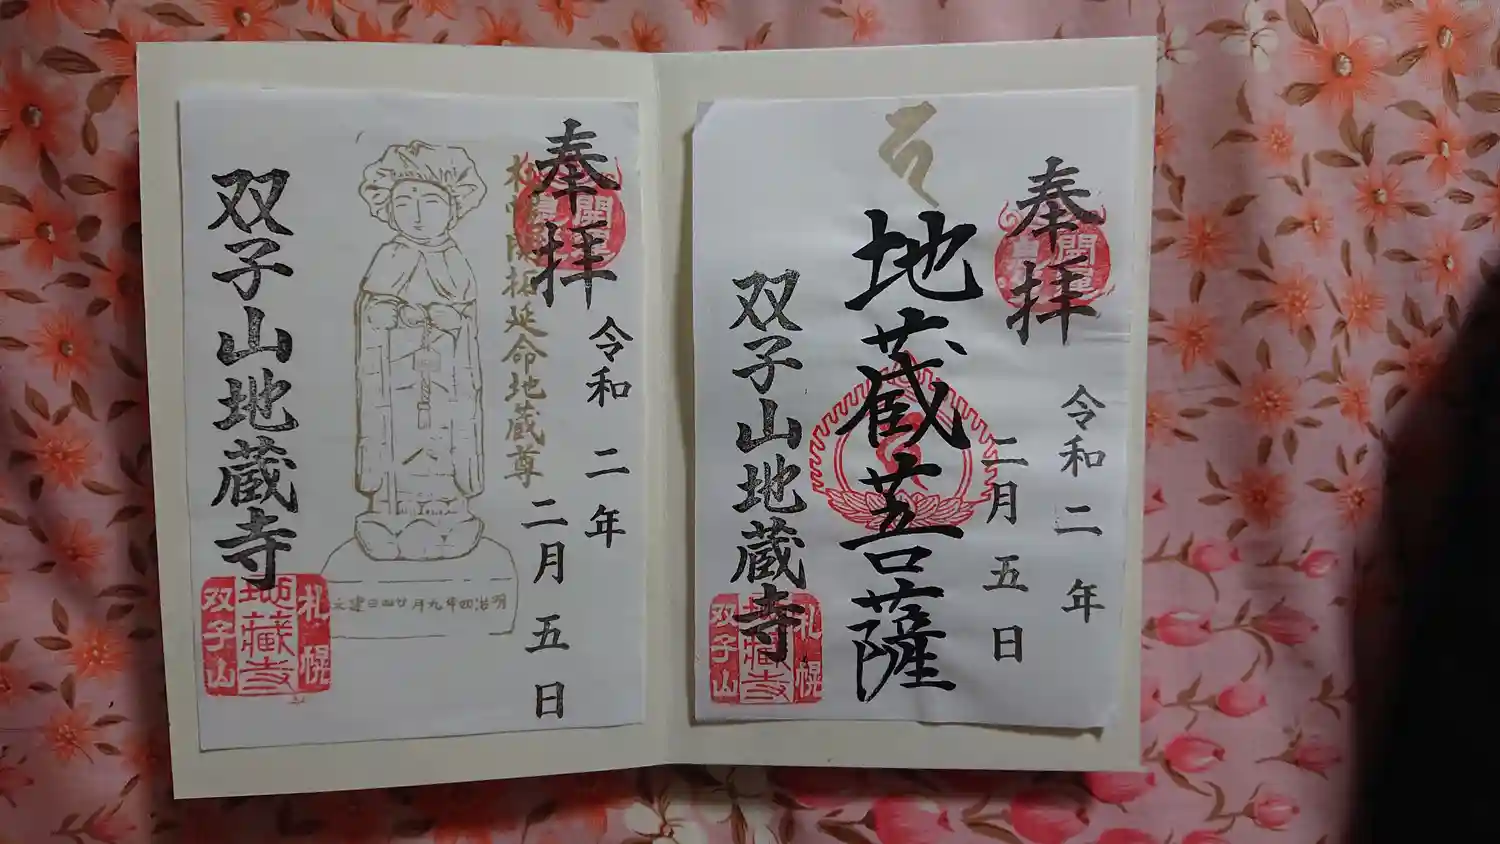 奉拝
令和二年
二月五日
地蔵菩薩
双子山地蔵寺
開運
札幌
地蔵寺
双子山
奉拝
開運
令和二年
二月五日
札幌開拓延命地蔵尊
明治四年九月廿四日建之
双子山地蔵寺
札幌
地蔵寺
双子山